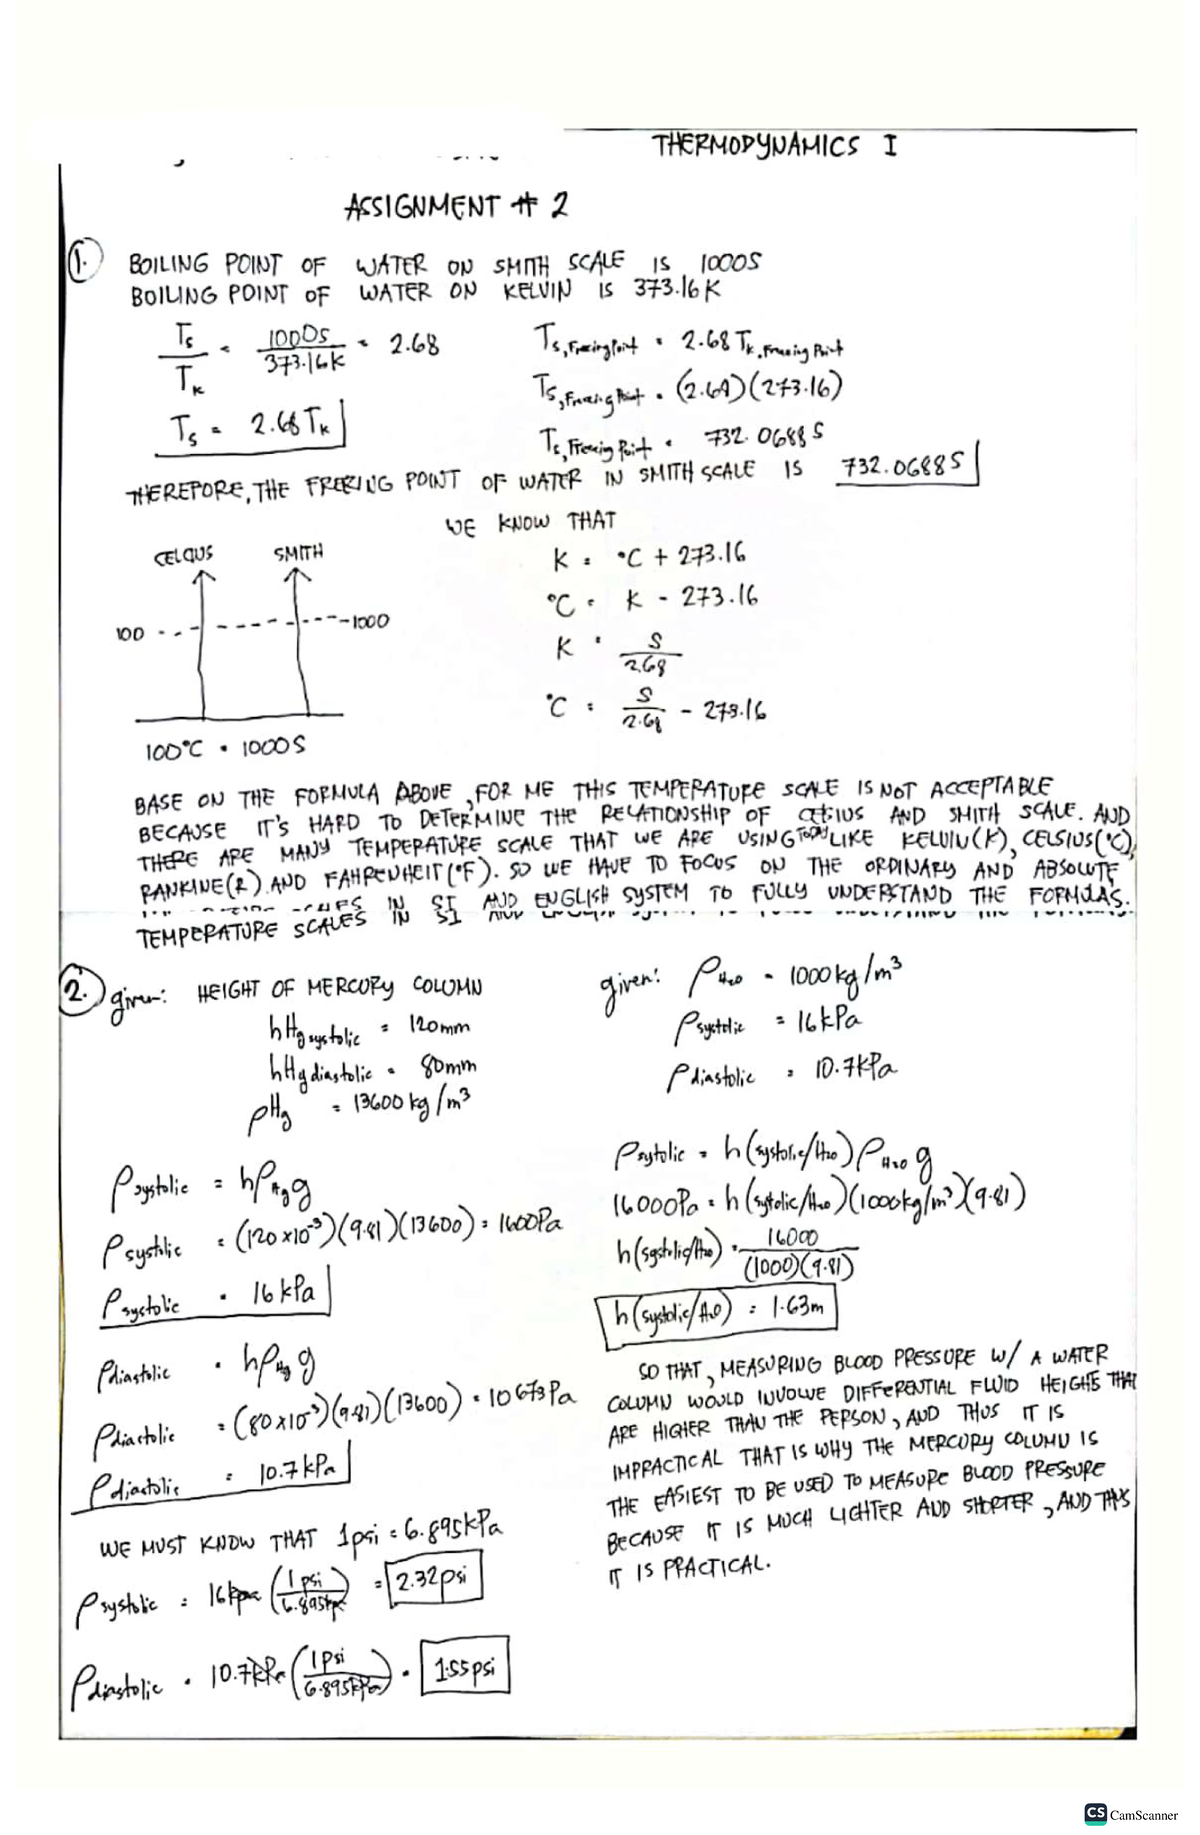 THERMODYNAMICS I
ASSIGNMENT # 2
1. BOILING POINT OF WATER ON SMITH SCALE IS 1000S
BOILING POINT OF WATER ON KELVIN IS 373.16K
Ts/TK = 1000s/373.16K = 2.68
Ts = 2.68 TK
Ts, Freezing Point = 2.68 TK, Freezing Point
Ts, Freezing Point = (2.68)(273.16)
Ts, Freezing Point = 732.0688 S
THEREFORE, THE FREEZING POINT OF WATER IN SMITH SCALE IS 732.0688S
CELCIUS SMITH
100 1000
100°C = 1000S
WE KNOW THAT
K = °C + 273.16
°C = K - 273.16
K = S/2.68
°C = S/2.68 - 273.16
BASE ON THE FORMULA ABOVE, FOR ME THIS TEMPERATURE SCALE IS NOT ACCEPTABLE
BECAUSE IT'S HARD TO DETERMINE THE RELATIONSHIP OF CELSIUS AND SMITH SCALE. AND
THERE ARE MANY TEMPERATURE SCALE THAT WE ARE USING TODAY LIKE KELVIN(K), CELSIUS(°C),
RANKINE(R) AND FAHRENHEIT(°F). SO WE HAVE TO FOCUS ON THE ORDINARY AND ABSOLUTE
IN SI AND ENGLISH SYSTEM TO FULLY UNDERSTAND THE FORMULAS.
TEMPERATURE SCALES IN SI
2. given: HEIGHT OF MERCURY COLUMN
hHg systolic = 120mm
hHg diastolic = 80mm
ρHg = 13600 kg/m³
Psystolic = hρHg g
Psystolic = (120x10⁻³)(9.81)(13600) = 1600Pa
Psystolic = 16 kPa
Pdiastolic = hρHg g
Pdiastolic = (80x10⁻³)(9.81)(13600) = 10673Pa
Pdiastolic = 10.7kPa
WE MUST KNOW THAT 1psi = 6.895kPa
Psystolic = 16kpa (1 psi/6.895kpa) = 2.32psi
Pdiastolic = 10.7kPa (1Psi/6.895kPa) = 1.55psi
given: ρH2O = 1000kg/m³
Psystolic = 16kPa
Pdiastolic = 10.7kPa
Psytolic = h(systolic/H2O) ρH2O g
16000Pa = h(systolic/H2O)(1000kg/m³)(9.81)
h(systolic/H2O) = 16000/(1000)(9.81)
h(systolic/H2O) = 1.63m
SO THAT, MEASURING BLOOD PRESSURE W/ A WATER
COLUMN WOULD INVOLVE DIFFERENTIAL FLUID HEIGHS THAT
ARE HIGHER THAN THE PERSON, AND THUS IT IS
IMPRACTICAL THAT IS WHY THE MERCURY COLUMN IS
THE EASIEST TO BE USED TO MEASURE BLOOD PRESSURE
BECAUSE IT IS MUCH LIGHTER AND SHORTER, AND THUS
IT IS PRACTICAL.
CS CamScanner